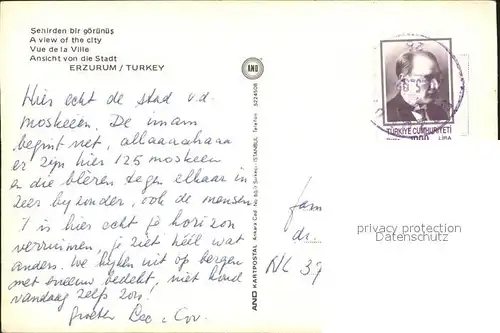 Şehirden bir görünüş
A view of the city
Vue de la Ville
Ansicht von die Stadt
ERZURUM / TURKEY
Hier echt de stad v.d.
moskeeën. De imam
begint net, allaaaachaaa
er zijn hier 125 moskeen
en die blèren tegen elkaar in
zeer byzonder, ook de mensen.
't is hier echt je horizon
verruimen, je ziet héél wat
anders. We kijken uit op bergen
met sneeuw bedekt, niet koud
vandaag zelfs zon!
Groeten Cor
AND
3224508
AND KARTPOSTAL Ankara Cad. No: Sirkeci-İSTANBUL Telefon
TÜRKİYE CUMHURİYETİ
LİRA
fam
dr.
NL 37
privacy protection
Datenschutz